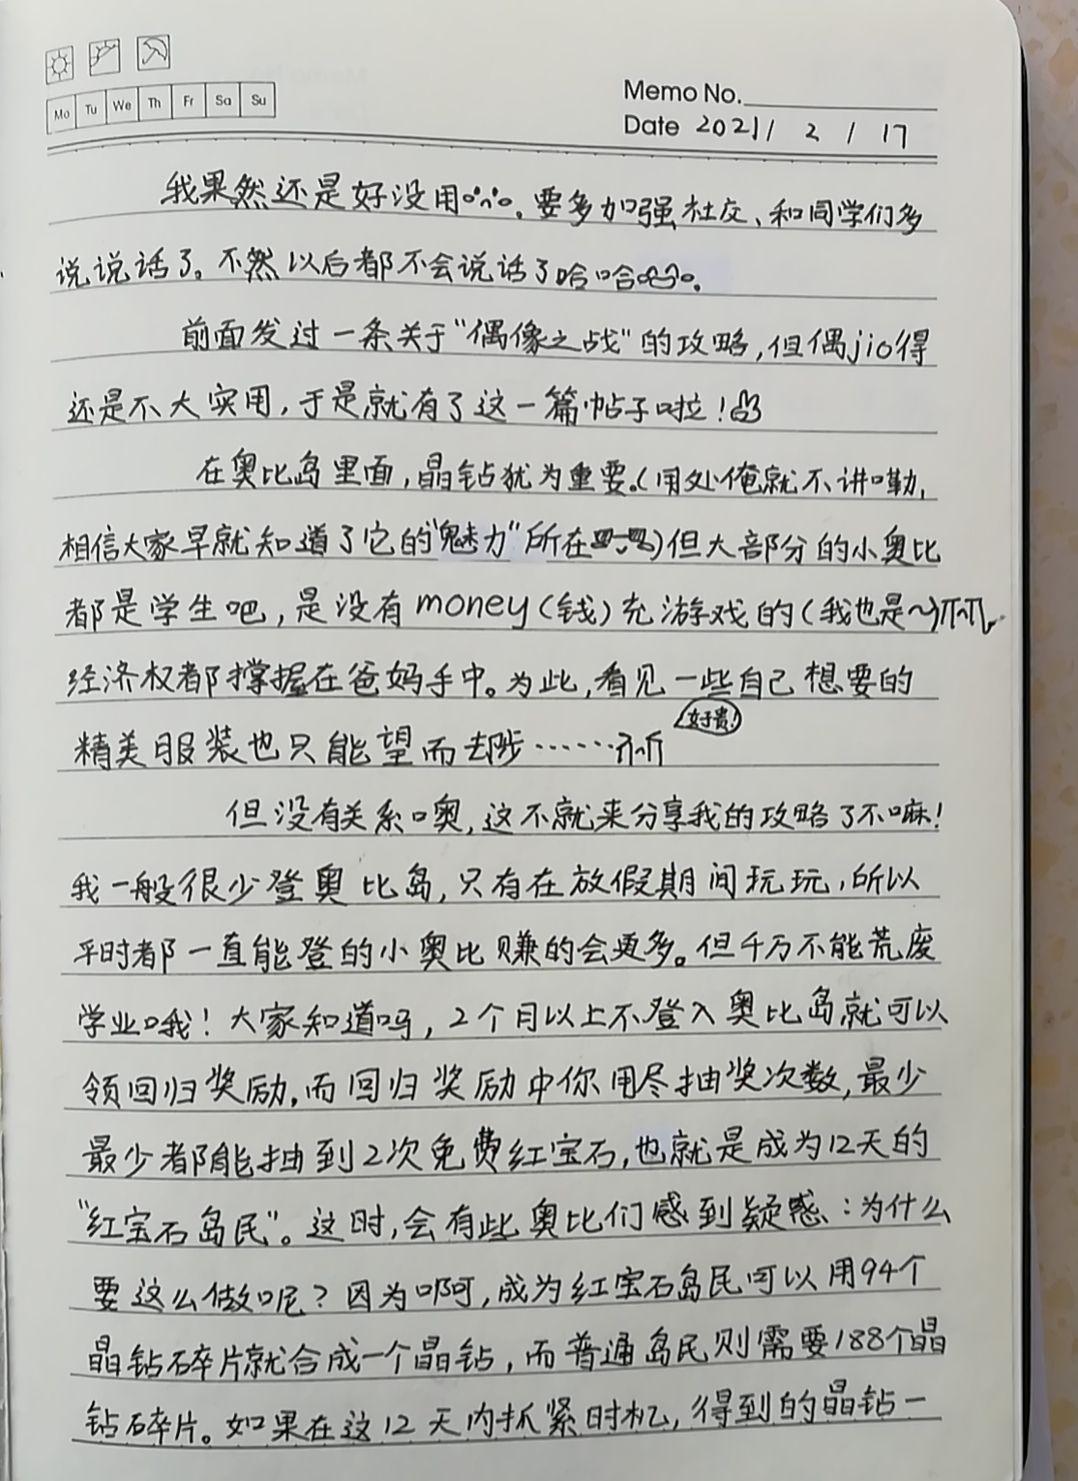 Mo Tu We Th Fr Sa Su
Memo No.
Date 2021 / 2 / 17
我果然还是好没用。要多加强社交、和同学们多
说说话了。不然以后都不会说话了哈哈。
前面发过一条关于“偶像之战”的攻略,但偶jio得
还是不大实用,于是就有了这一篇帖子啦!
在奥比岛里面,晶钻犹为重要。(用处俺就不讲嘞,
相信大家早就知道了它的“魅力”所在)但大部分的小奥比
都是学生吧,是没有money(钱)充游戏的(我也是~)
经济权都撑握在爸妈手中。为此,看见一些自己想要的
好贵!
精美服装也只能望而却步……
但没有关系噢,这不就来分享我的攻略了不嘛!
我一般很少登奥比岛,只有在放假期间玩玩,所以
平时都一直能登的小奥比赚的会更多。但千万不能荒废
学业哦!大家知道吗,2个月以上不登入奥比岛就可以
领回归奖励,而回归奖励中你用尽抽奖次数,最少
最少都能抽到2次免费红宝石,也就是成为12天的
“红宝石岛民”。这时,会有些奥比们感到疑惑:为什么
要这么做呢?因为啊,成为红宝石岛民可以用94个
晶钻碎片就合成一个晶钻,而普通岛民则需要188个晶
钻碎片。如果在这12天内抓紧时机,得到的晶钻一